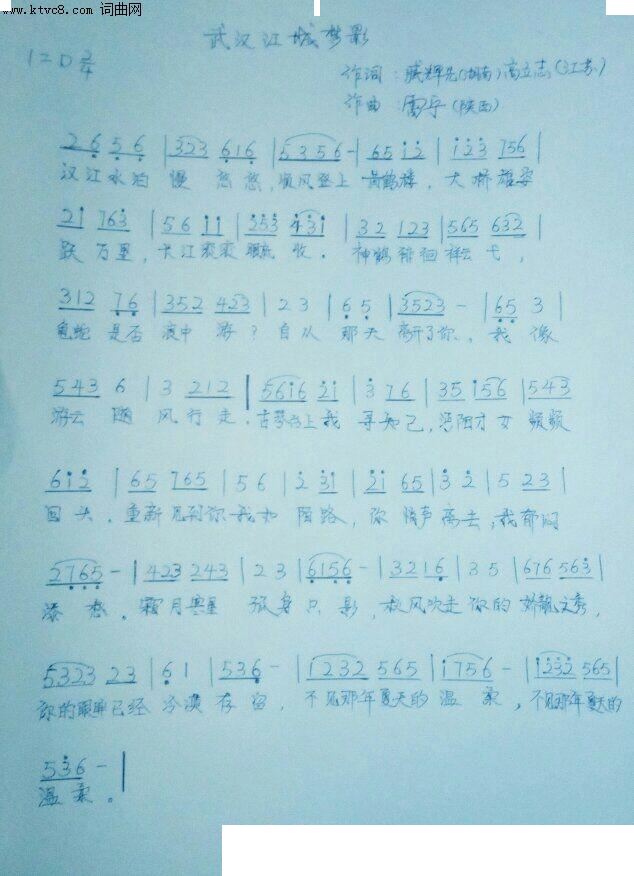 www.ktvc8.com 词曲网
武汉江城梦影
1=D 2/4
作词：臧辉先(湖南)高立志(江苏)
作曲：雷宇(陕西)
2 6 5 6 | 323 616 | 5356- | 65 12 | 123 756 |
汉江水泊慢悠悠，顺风登上黄鹤楼，大桥雄姿
21 763 | 56 11 | 253 431 | 32 123 | 565 632 |
跃万里，长江滚滚眼底收。神鹤徘徊祥云弋，
312 76 | 352 423 | 2 3 | 6 5 | 3523 - | 65 3 |
龟蛇是否浪中游？自从那天离开了你，我像
543 6 | 3 212 | 5616 21 | 3 76 | 35 156 | 543
游云随风行走，古琴台上我寻知己，汉阳才女频频
612 | 65 765 | 5 6 | 2 31 | 21 65 | 3 2 | 5 23 |
回头。重新见到你我如陌路，你悄声离去，我郁闷
2765 - | 423 243 | 2 3 | 6156 - | 3216 | 3 5 | 676 563 |
添愁。霜月寒星孤身只影，秋风吹走你的娇靓文秀，
5323 23 | 6 1 | 536 - | 1232 565 | 1756 - | 1232 565 |
你的眼眸已经冷漠存留，不见那年夏天的温柔，不见那年夏天的
536 - |
温柔。